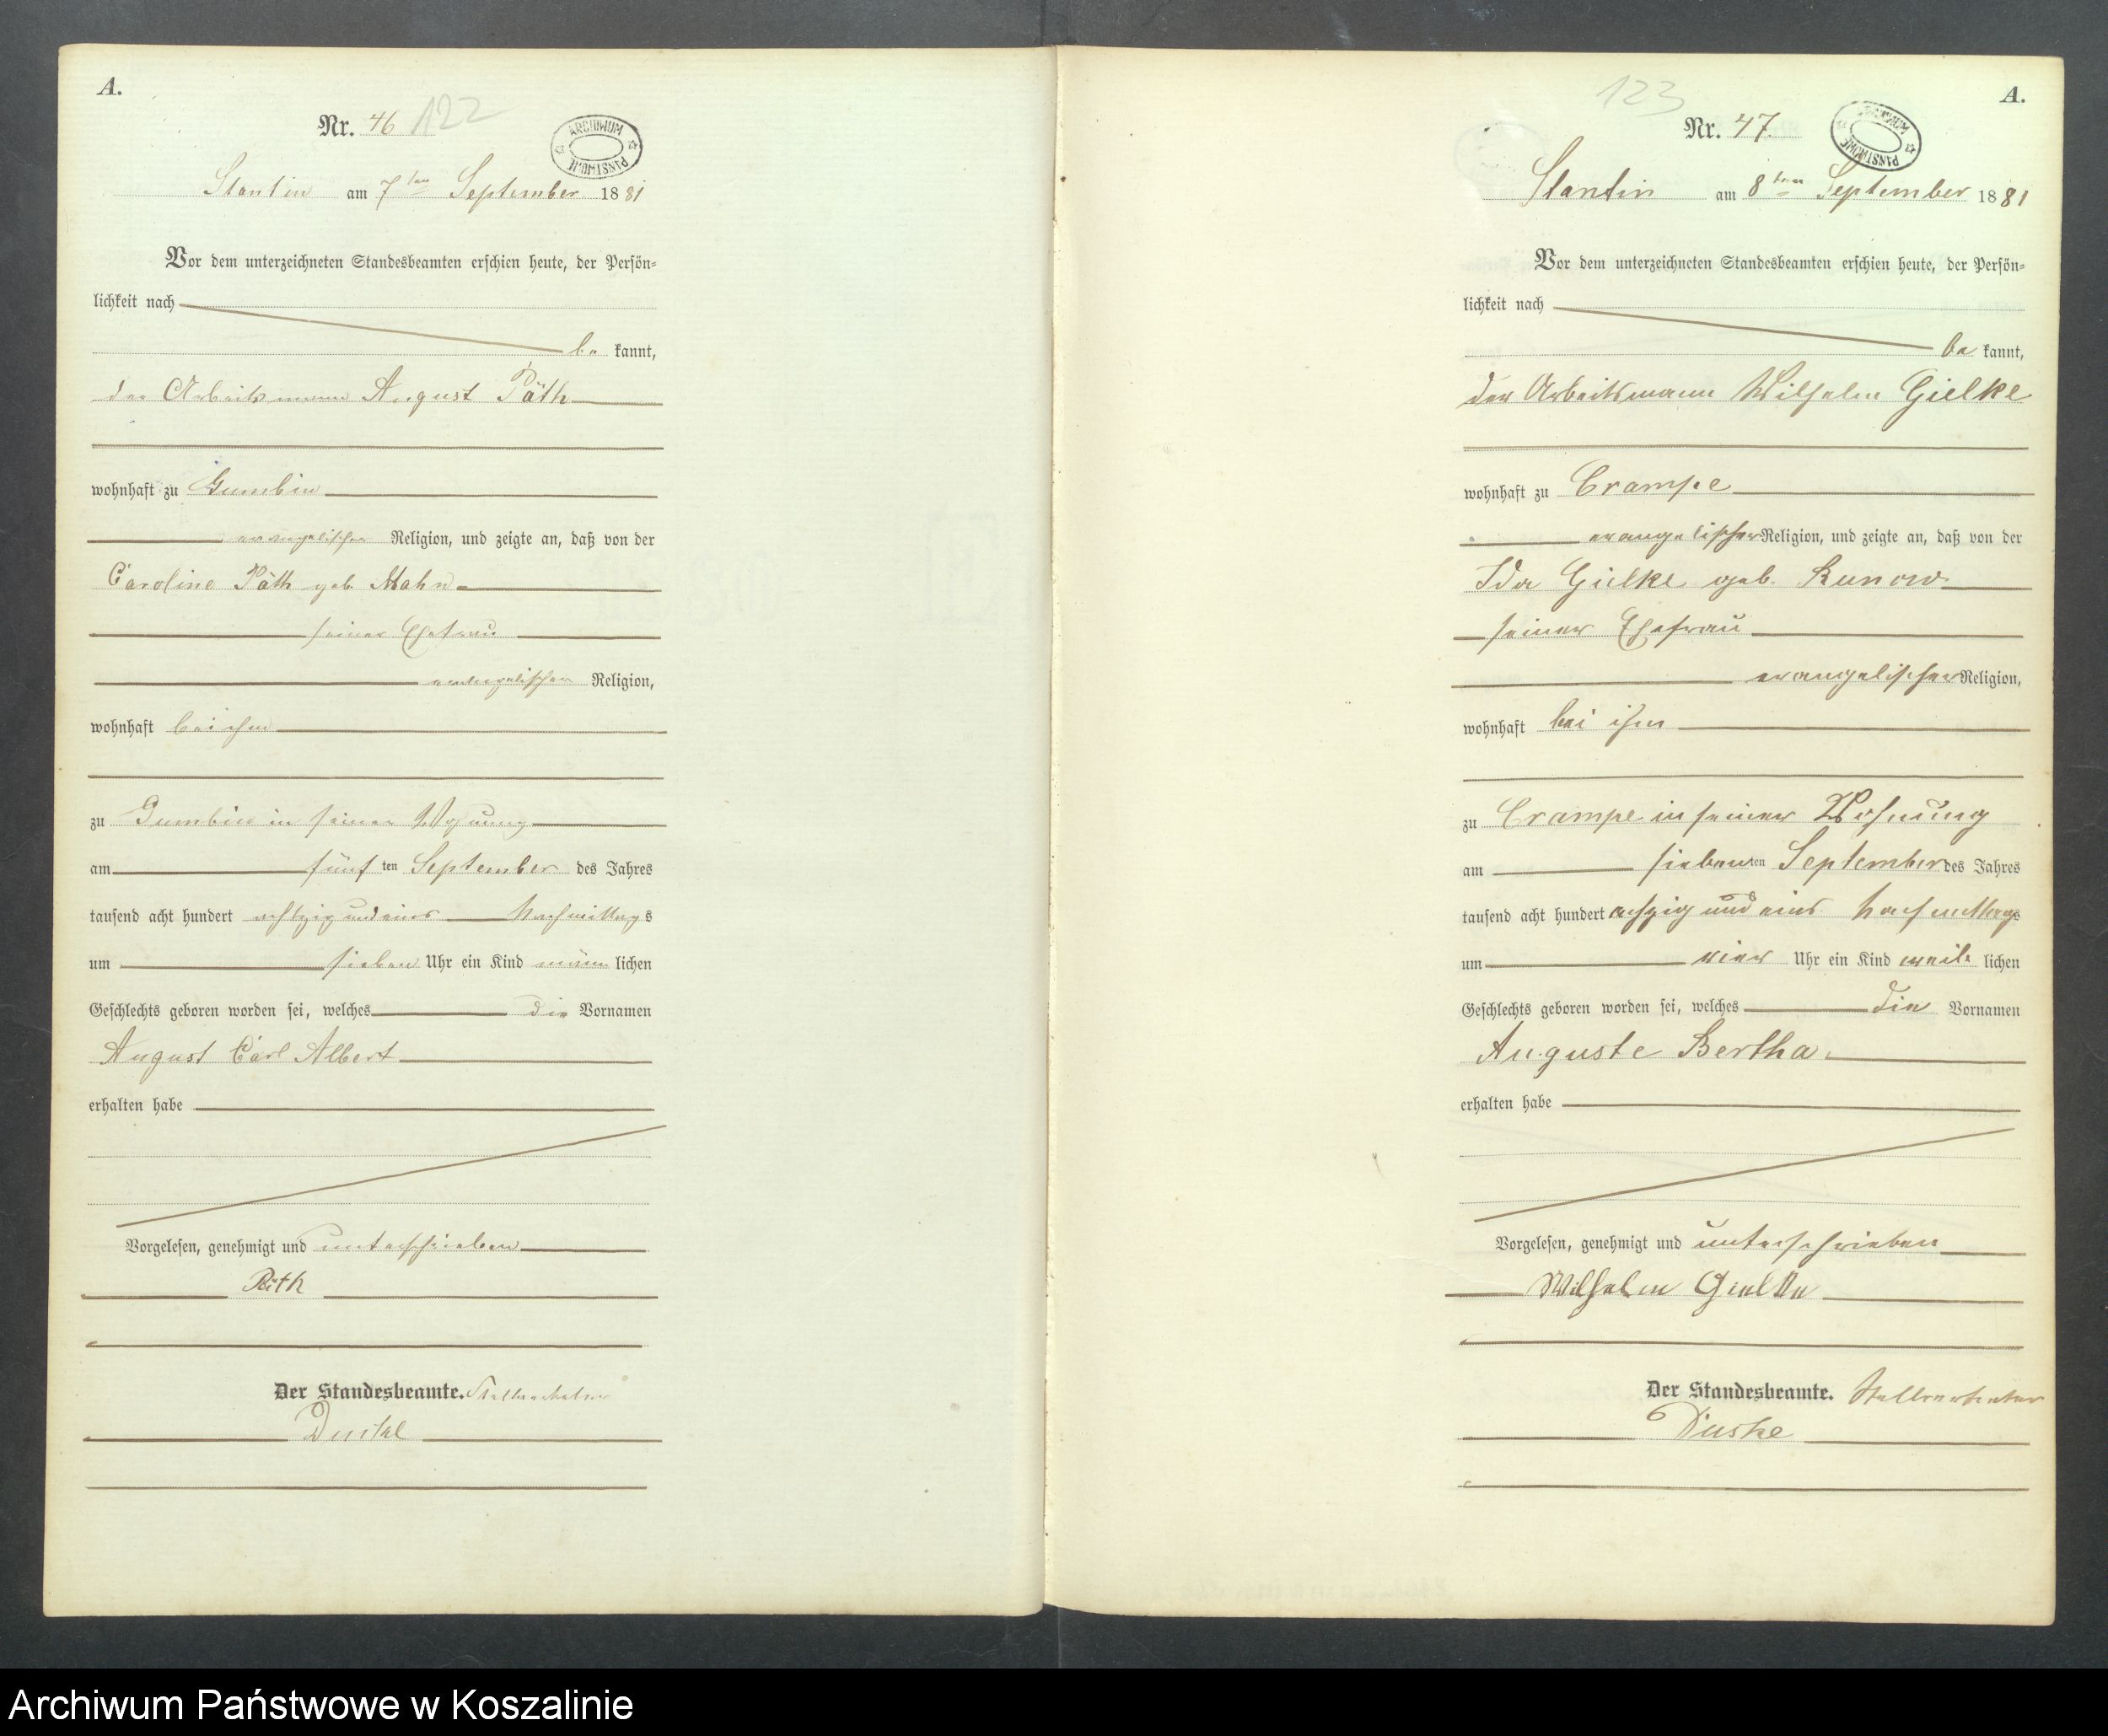 A.
Nr. 46 122
ARCHIWUM PAŃSTWOWE
Stantin am 7ten September 1881
Vor dem unterzeichneten Standesbeamten erschien heute, der Persön=
lichkeit nach
be kannt,
der Arbeitsmann August Päth
wohnhaft zu Gumbin
evangelischer Religion, und zeigte an, daß von der
Caroline Päth geb. Mahn
seiner Ehefrau
evangelischer Religion,
wohnhaft bei ihm
zu Gumbin in seiner Wohnung
am fünf ten September des Jahres
tausend acht hundert achtzig und eins Nachmittags
um sieben Uhr ein Kind männ lichen
Geschlechts geboren worden sei, welches die Vornamen
August Carl Albert
erhalten habe
Vorgelesen, genehmigt und unterschrieben
Päth
Der Standesbeamte. Stellvertreter
A.
123
Nr. 47.
ARCHIWUM PAŃSTWOWE
Stantin am 8ten September 1881
Vor dem unterzeichneten Standesbeamten erschien heute, der Persön=
lichkeit nach
be kannt,
der Arbeitsmann Wilhelm Gielke
wohnhaft zu Crampe
evangelischer Religion, und zeigte an, daß von der
Ida Gielke geb. Kunow
seiner Ehefrau
evangelischer Religion,
wohnhaft bei ihm
zu Crampe in seiner Wohnung
am sieben ten September des Jahres
tausend acht hundert achzig und eins Nachmittags
um vier Uhr ein Kind weib lichen
Geschlechts geboren worden sei, welches die Vornamen
Auguste Bertha
erhalten habe
Vorgelesen, genehmigt und unterschrieben
Wilhelm Gielke
Der Standesbeamte. Stellvertreter
Archiwum Państwowe w Koszalinie